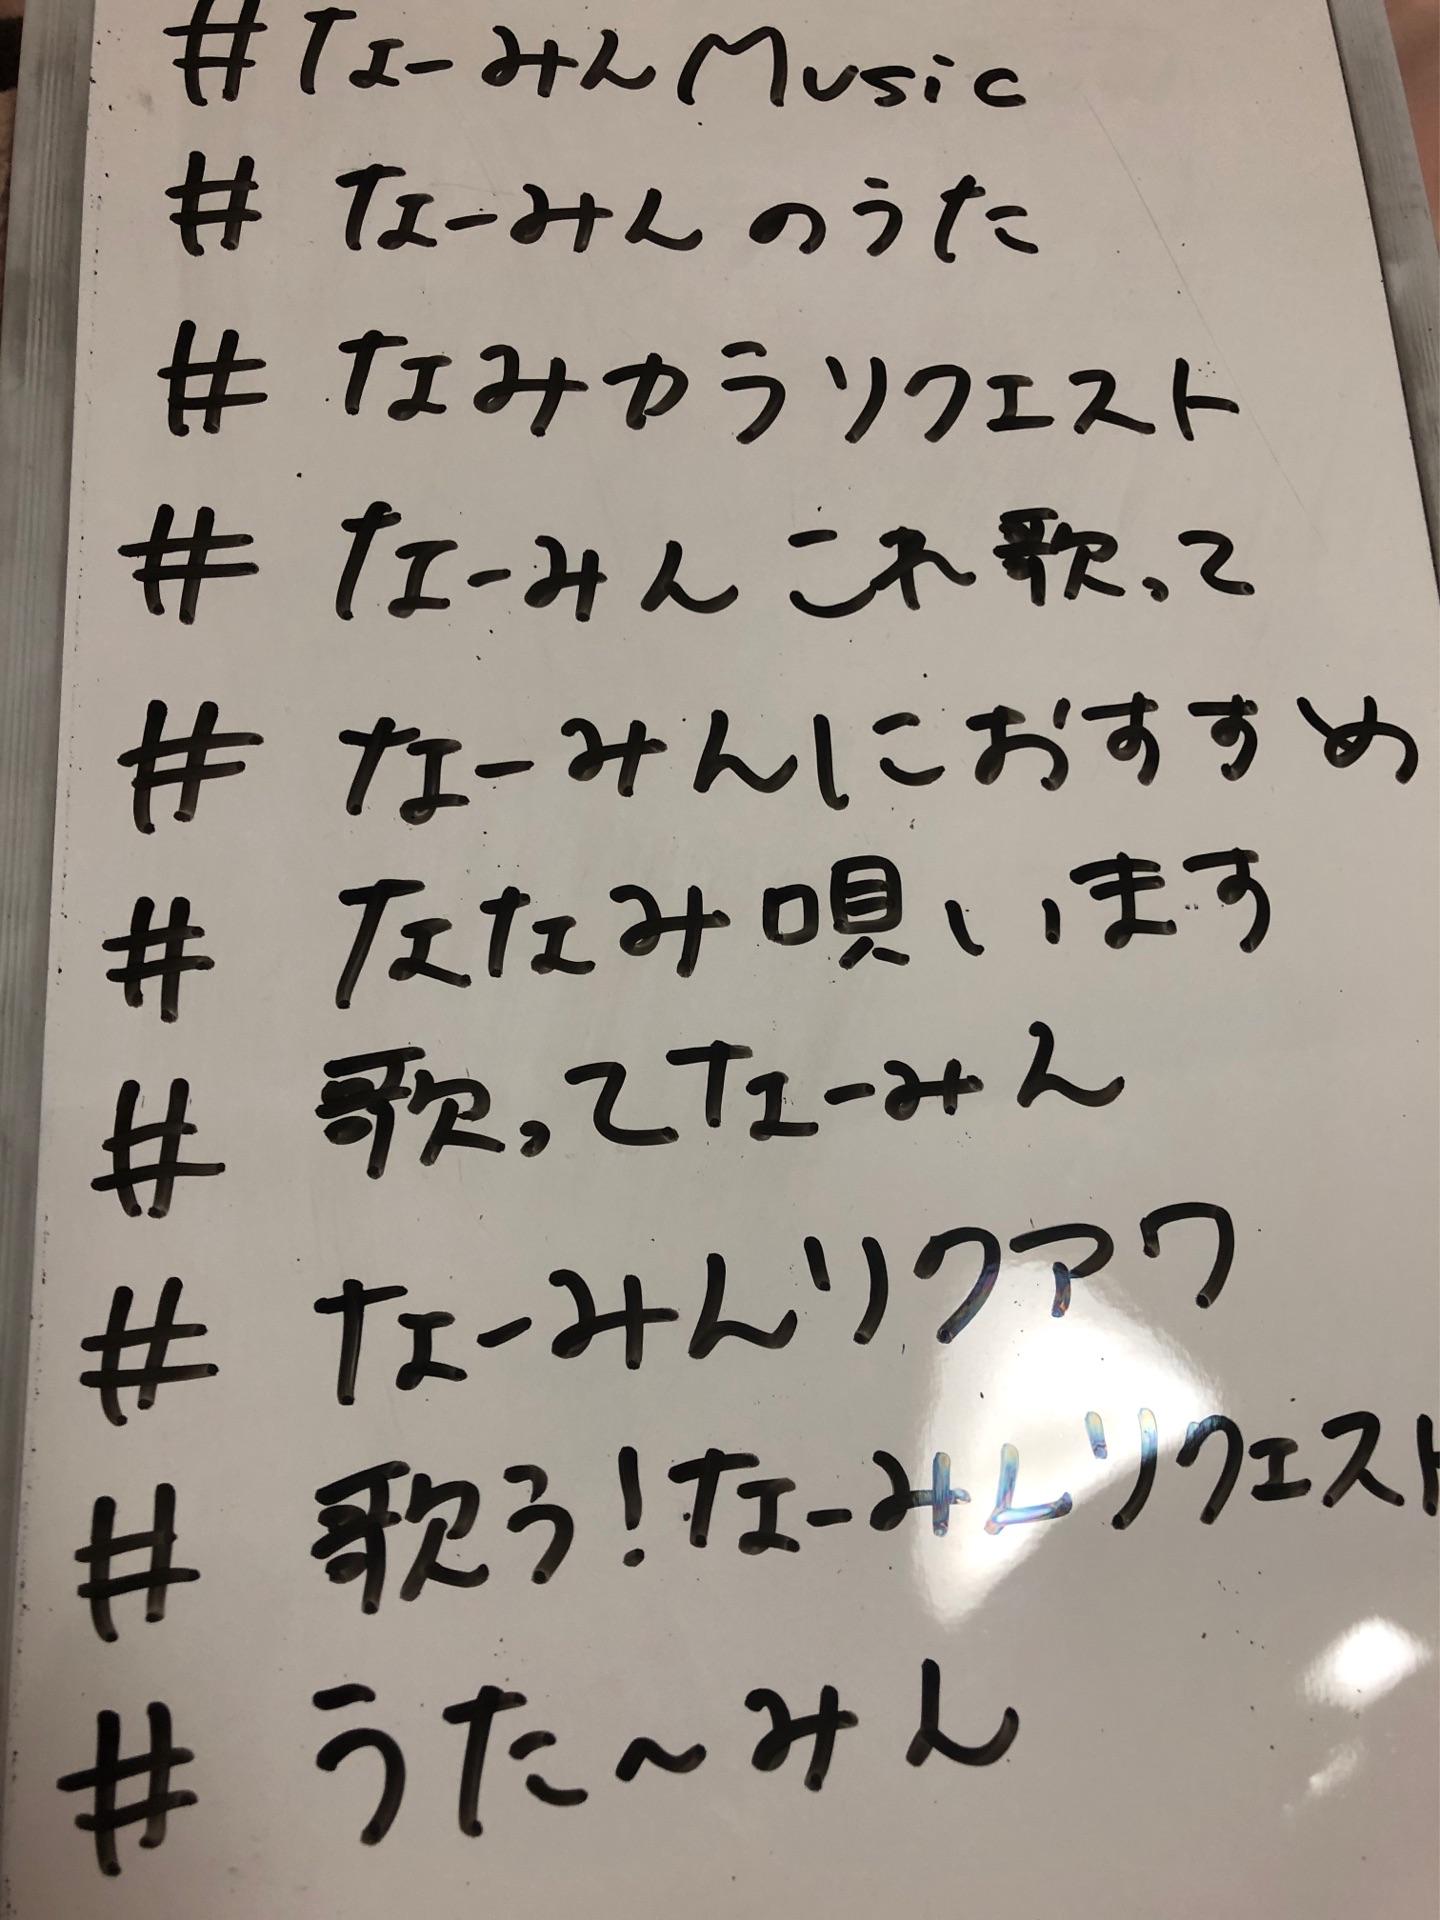 #なーみんMusic
# なーみんのうた
# なみカラリクエスト
# なーみんこれ歌って
# なーみんにおすすめ
# ななみ唄います
# 歌ってなーみん
# なーみんリクアワ
# 歌う!なーみんリクエスト
# うた〜みん